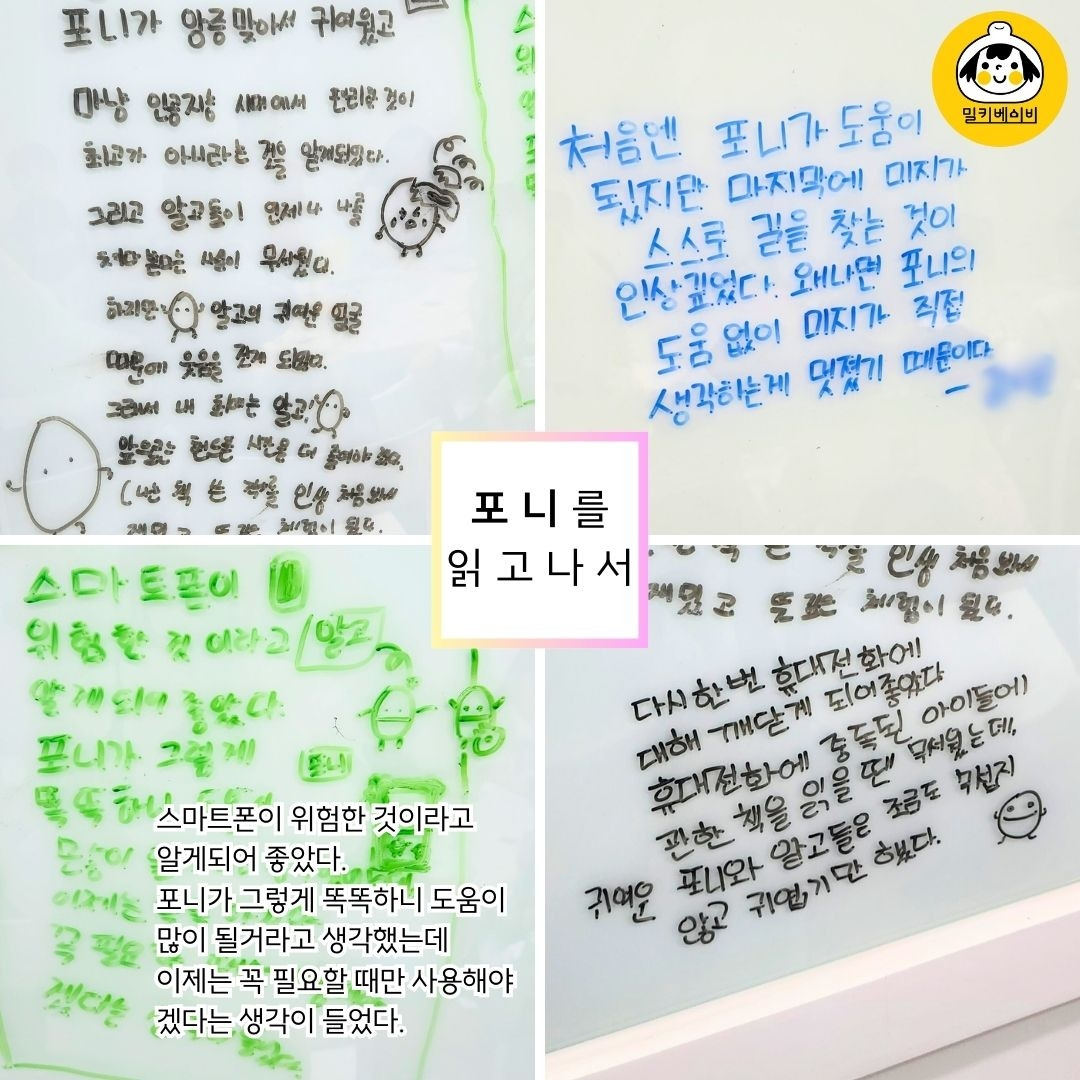 포니가 앙증맞아서 귀여웠고
마냥 인공지능 세대에서 편리한 것이
최고가 아니라는 것을 알게되었다.
그리고 알고들이 언제나 나를
쳐다 본다는 점이 무서웠다.
하지만 알고의 귀여운 얼굴
때문에 웃음을 짓게 되었다.
그래서 내 최애는 알고!
앞으로는 핸드폰 시간을 더 줄여야 겠다.
(난 책 쓴 작가를 인생 처음 보서
재밌고 뜻 깊은 체험이 됬다.
밀키베이비
처음엔 포니가 도움이
됬지만 마지막에 미지가
스스로 길을 찾는 것이
인상깊었다. 왜냐면 포니의
도움 없이 미지가 직접
생각하는게 멋졌기 때문이다
포니를
읽고나서
스마트폰이
위험한 것 이라고 알고
알게되어 좋았다.
포니가 그렇게
포니
똑똑하니
많이
이제는
꼭 필요
겠다는
스마트폰이 위험한 것이라고
알게되어 좋았다.
포니가 그렇게 똑똑하니 도움이
많이 될거라고 생각했는데
이제는 꼭 필요할 때만 사용해야
겠다는 생각이 들었다.
인생 처음 보서
재밌고 뜻 깊은 체험이 됬다.
다시한번 휴대전화에
대해 깨닫게 되어좋았다
휴대전화에 중독된 아이들에
관한 책을 읽을 땐 무서웠는데,
귀여운 포니와 알고들은 조금도 무섭지
않고 귀엽기만 했다.